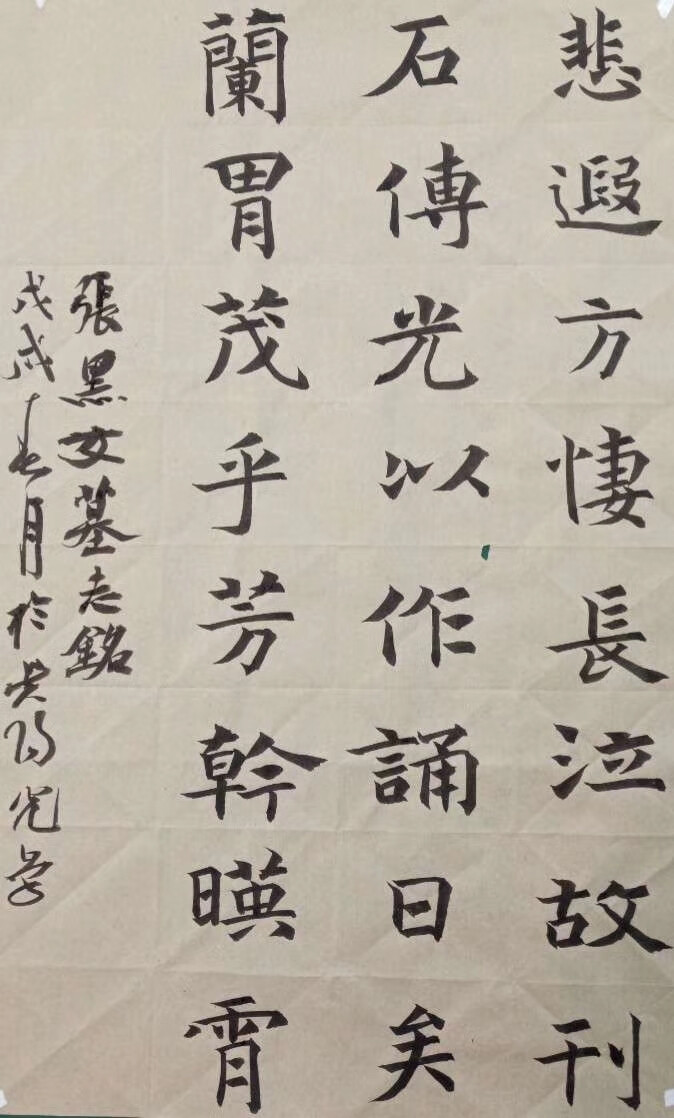 悲遐方悽長泣故刊
石傳光以作誦曰矣
蘭胃茂乎芳幹暎霄
張黑女墓志銘
戊戌春月於